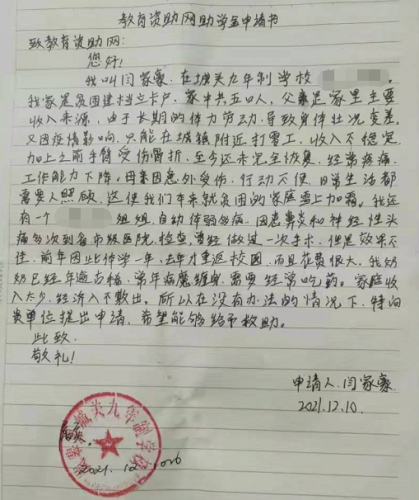 教育资助网助学金申请书
致教育资助网:
您好!
我叫闫家豪,在坡头九年制学校
我家是贫困建档立卡户,家中共五口人,父亲是家里主要
收入来源,由于长期的体力劳动,导致身体状况变差,
又因疫情影响,只能在城镇附近打零工,收入不稳定
加上之前手臂受伤骨折,至今还未完全恢复,经常疼痛,
工作能力下降。母亲因意外受伤,行动不便,日常生活都
需要人照顾,这使我们本来就贫困的家庭雪上加霜。我还
有一个 姐姐,自幼体弱多病,因患鼻炎和神经性头
痛多次到省市级医院,检查,曾经做过一次手术,但是效果不
佳,前年因此休学一年,去年才重返校园,而且花费很大,我奶
奶已经年逾古稀,常年病魔缠身,需要经常吃药。家庭收
入太少,经济入不敷出。所以在没有办法的情况下,特向
贵单位提出申请,希望能够给予救助。
此致
敬礼!
申请人:闫家豪
2021.12.10.
坡头九年制学校
属实,
2021.12.